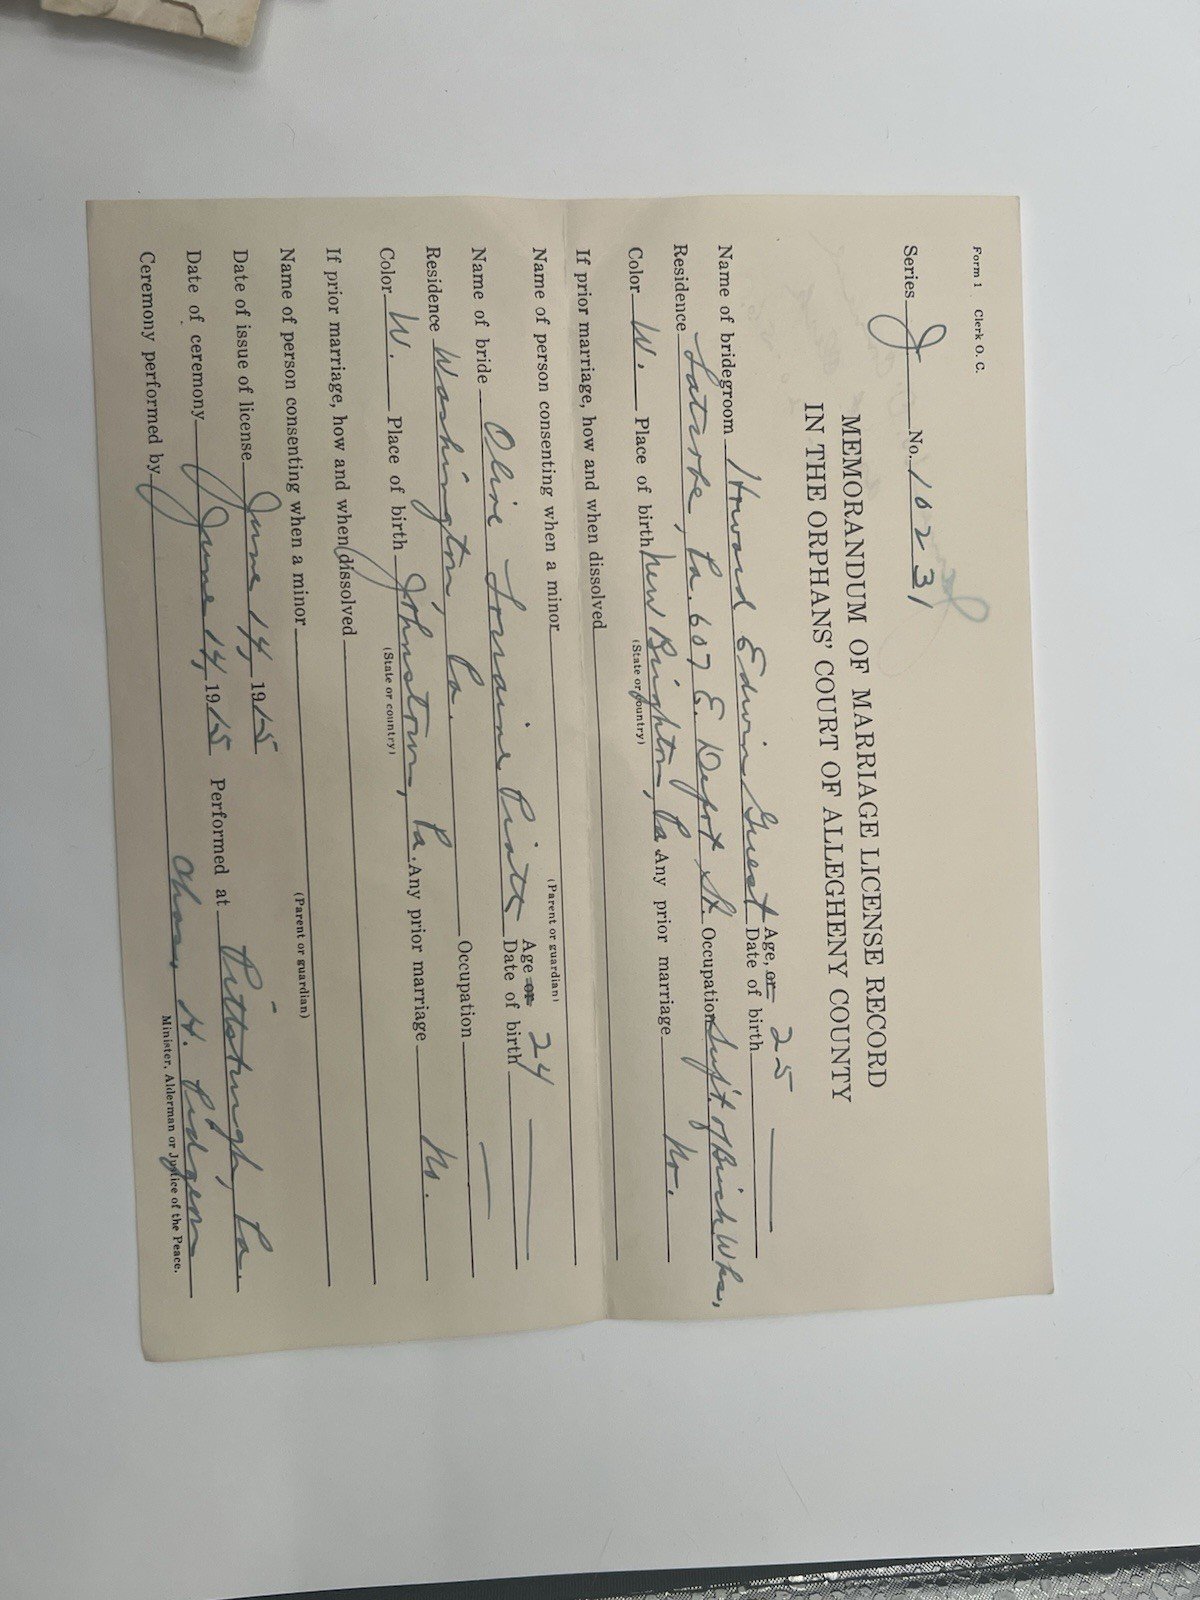 Form 1 Clerk O. C.
Series J No. 10231
MEMORANDUM OF MARRIAGE LICENSE RECORD
IN THE ORPHANS' COURT OF ALLEGHENY COUNTY
Name of bridegroom Howard Edwin Guest Age, or Date of birth 25
Residence Latrobe, Pa. 607 E. Depot St. Occupation Sup't. of Brick Wks,
Color W. Place of birth New Brighton, Pa Any prior marriage No.
(State or country)
If prior marriage, how and when dissolved
Name of person consenting when a minor
(Parent or guardian)
Name of bride Olive Lorraine Piatt Age or Date of birth 24
Residence Washington, Pa. Occupation
Color W. Place of birth Johnstown, Pa. Any prior marriage No.
(State or country)
If prior marriage, how and when dissolved
Name of person consenting when a minor
(Parent or guardian)
Date of issue of license June 14, 1915
Date of ceremony June 14, 1915 Performed at Pittsburgh, Pa.
Ceremony performed by Chas. H. Pidgeon
Minister, Alderman or Justice of the Peace.